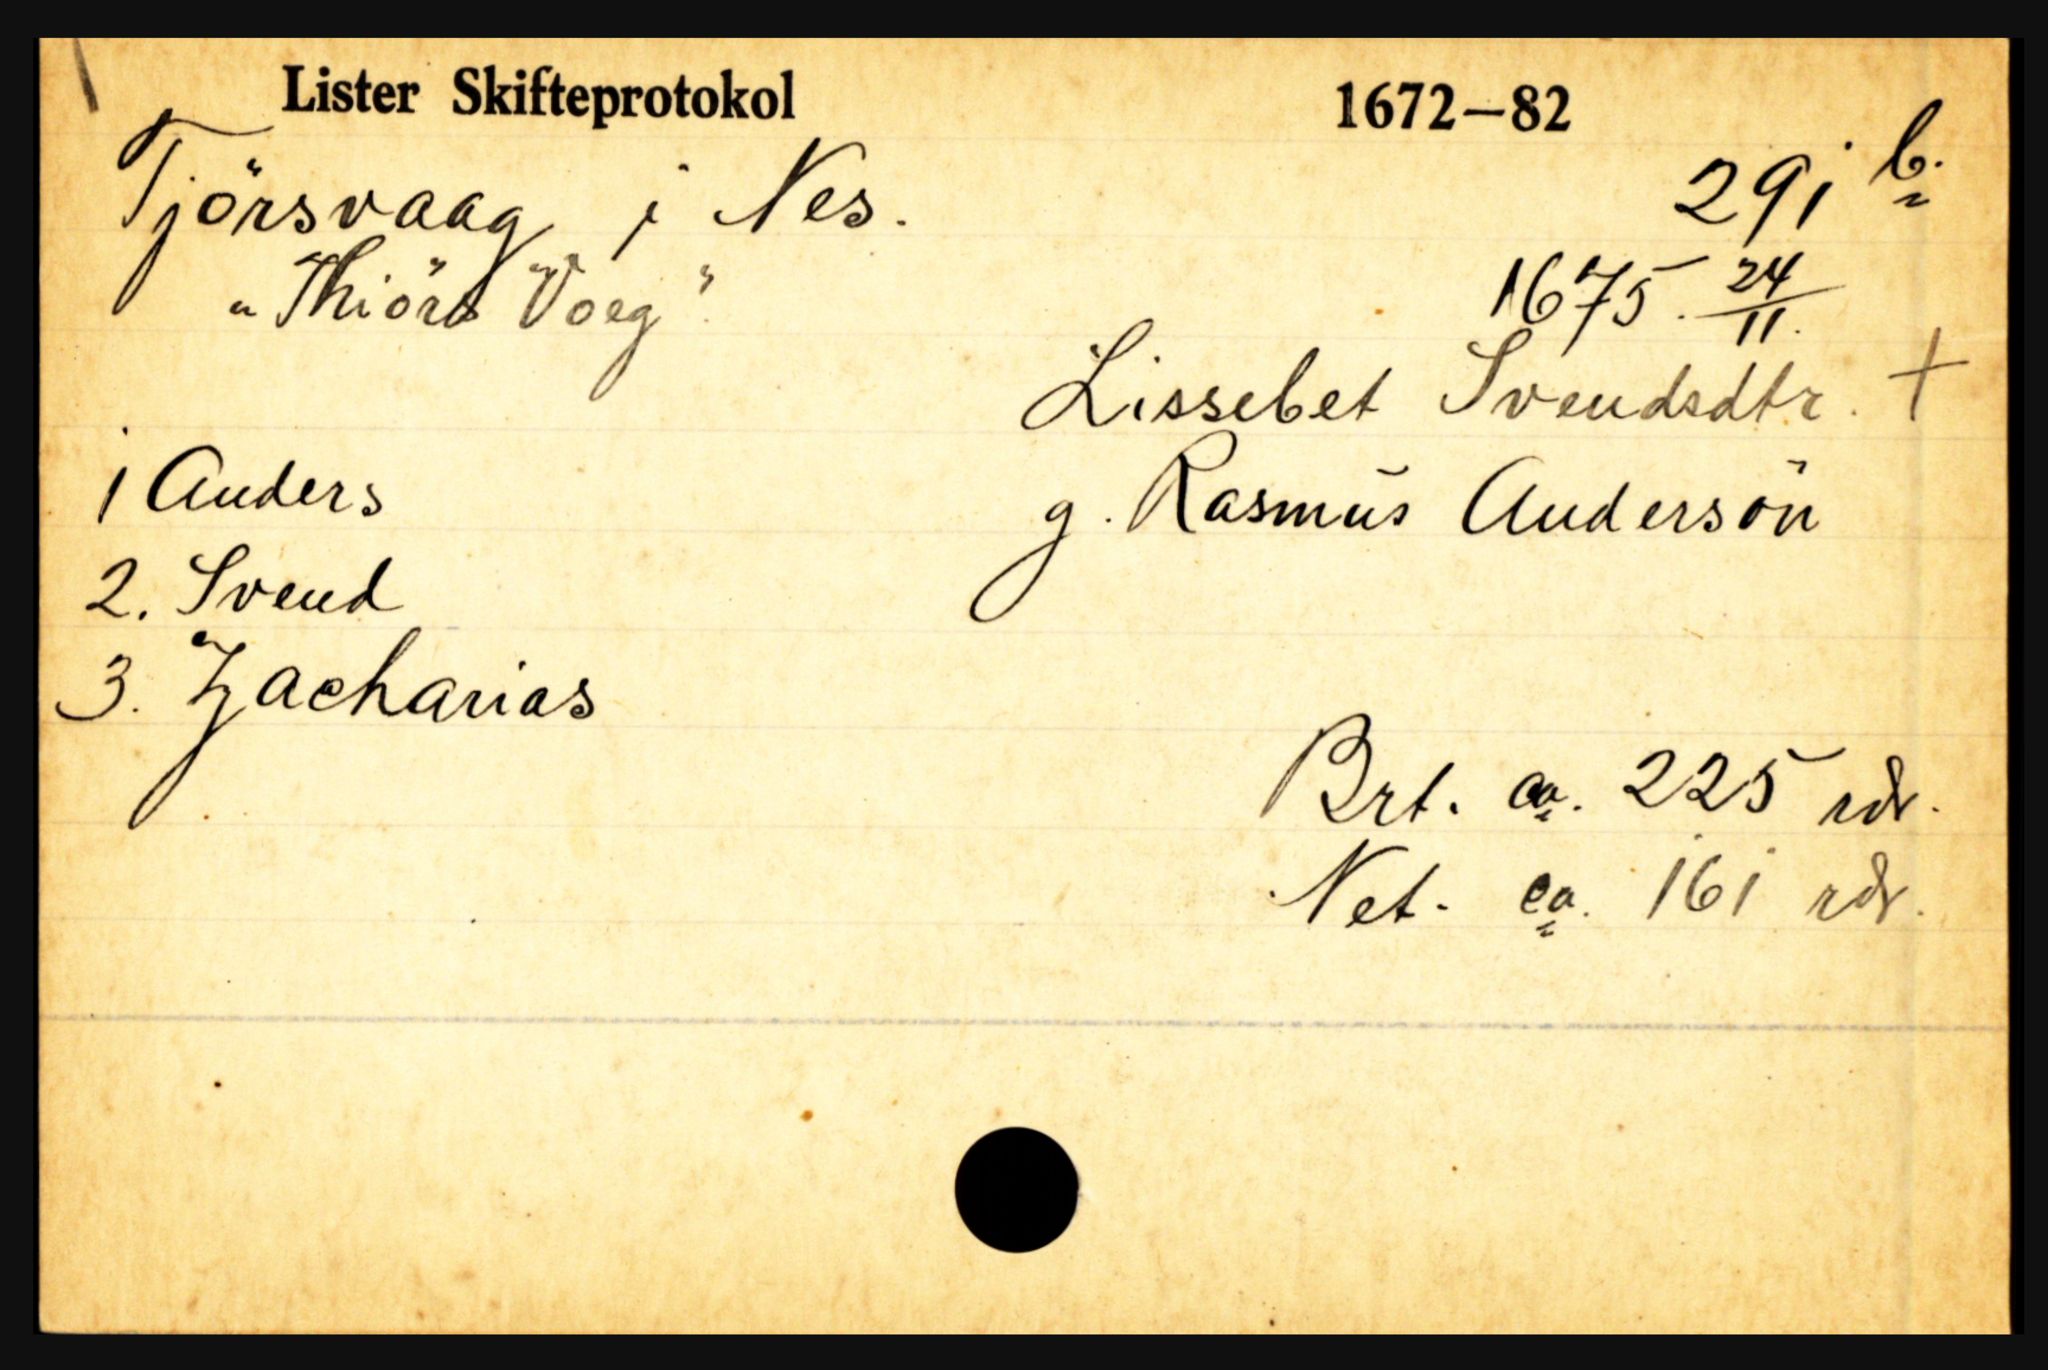 Lister Skifteprotokol 1672–82
Tjörsvaag i Nes. 291 b.
"Thiörs Voeg". 1675. 24/11.
Lissebet Svendsdtr. +
1 Anders g. Rasmus Andersön
2. Svend
3. Zacharias
Brt. ca. 225 rdr.
Net. ca. 161 rdr.